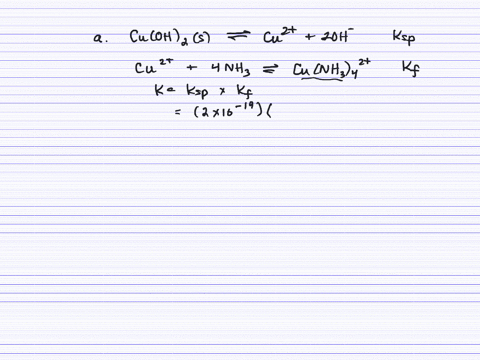 a. Cu(OH)₂(s) ⇌ Cu²⁺ + 2OH⁻ Ksp
Cu²⁺ + 4NH₃ ⇌ Cu(NH₃)₄²⁺ Kf
K = Ksp × Kf
= (2×10⁻¹⁹)(